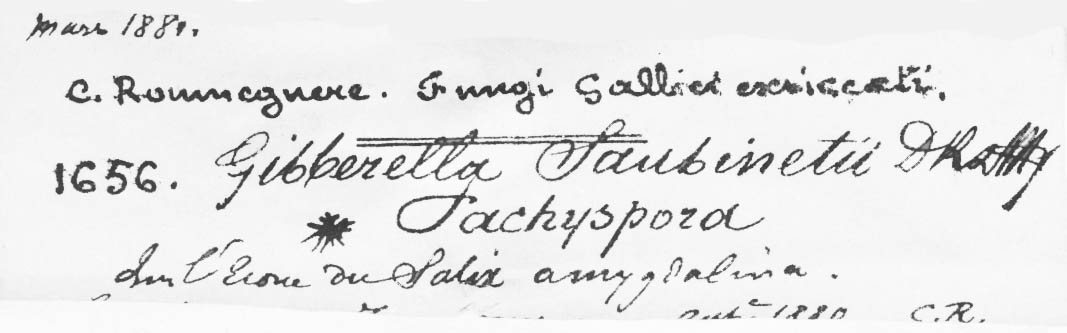 Mars 1881.
C. Roumeguere. Fungi Gallici exsiccati.
1656. Gibberella Saubinetii
Pachyspora
Sur l'Ecorce du Salix amygdalina.
1880 C.R.